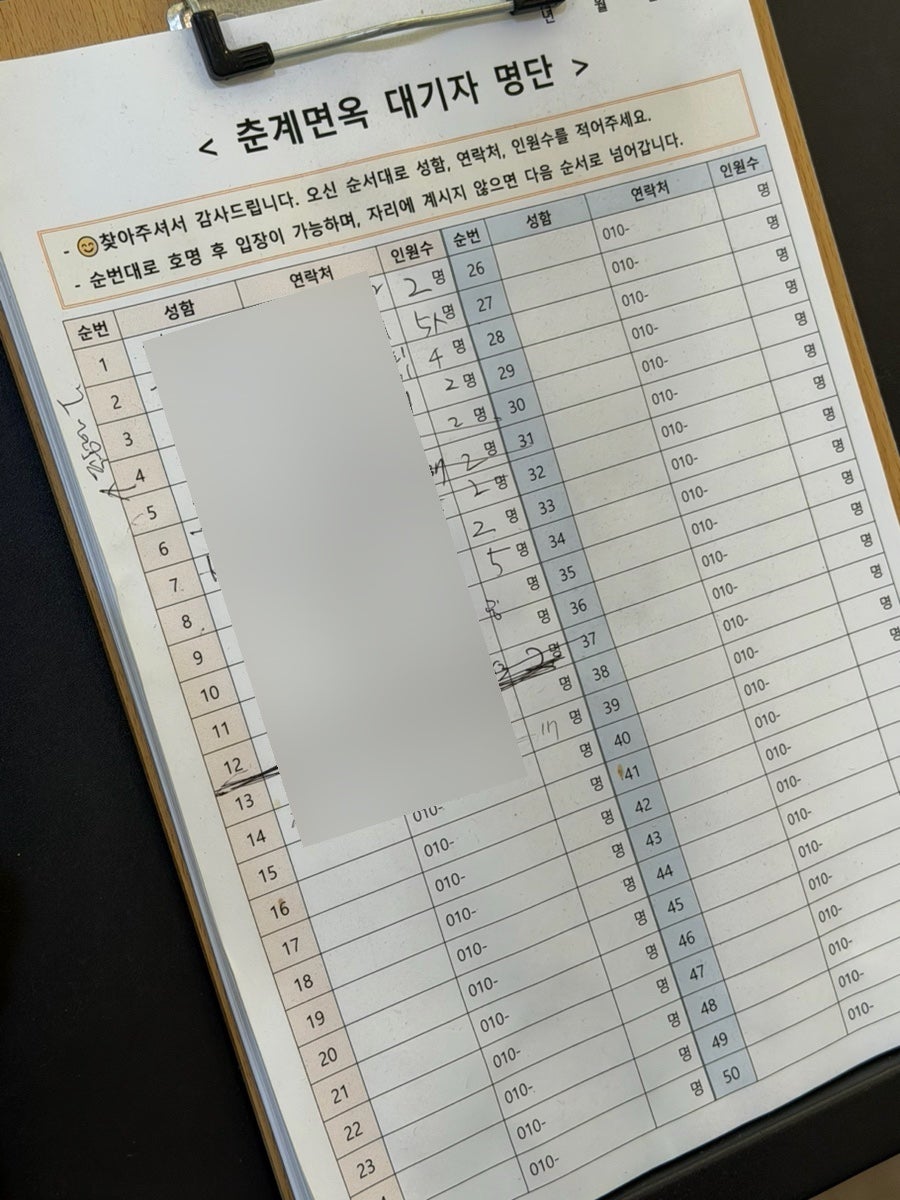 년 월
< 춘계면옥 대기자 명단 >
- 😊찾아주셔서 감사드립니다. 오신 순서대로 성함, 연락처, 인원수를 적어주세요.
- 순번대로 호명 후 입장이 가능하며, 자리에 계시지 않으면 다음 순서로 넘어갑니다.
순번 성함 연락처 인원수 순번 성함 연락처 인원수
1 2명 26 010- 명
2 5명 27 010- 명
3 4명 28 010- 명
4 2명 29 010- 명
5 2명 30 010- 명
6 2명 31 010- 명
7 2명 32 010- 명
8 2명 33 010- 명
9 5명 34 010- 명
10 명 35 010- 명
11 명 36 010- 명
12 2명 37 010- 명
13 명 38 010- 명
14 010- 명 39 010- 명
15 010- 명 40 010- 명
16 010- 명 41 010-
17 010- 명 42 010-
18 010- 명 43 010-
19 010- 명 44 010-
20 010- 명 45 010-
21 010- 명 46 010-
22 010- 명 47 010-
23 010- 명 48 010-
010- 명 49 010-
명 50 010-